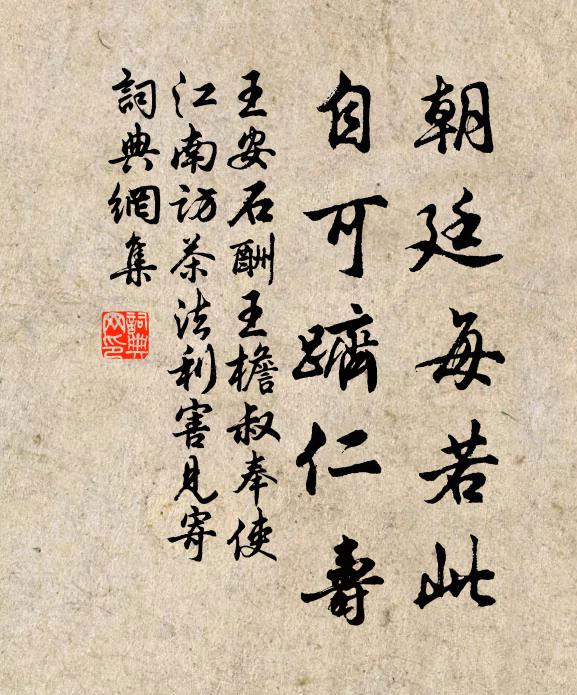 朝廷每若此
自可躋仁壽
王安石酬王檐叔奉使
江南訪茶法利害見寄
詞典網集
詞典
网印